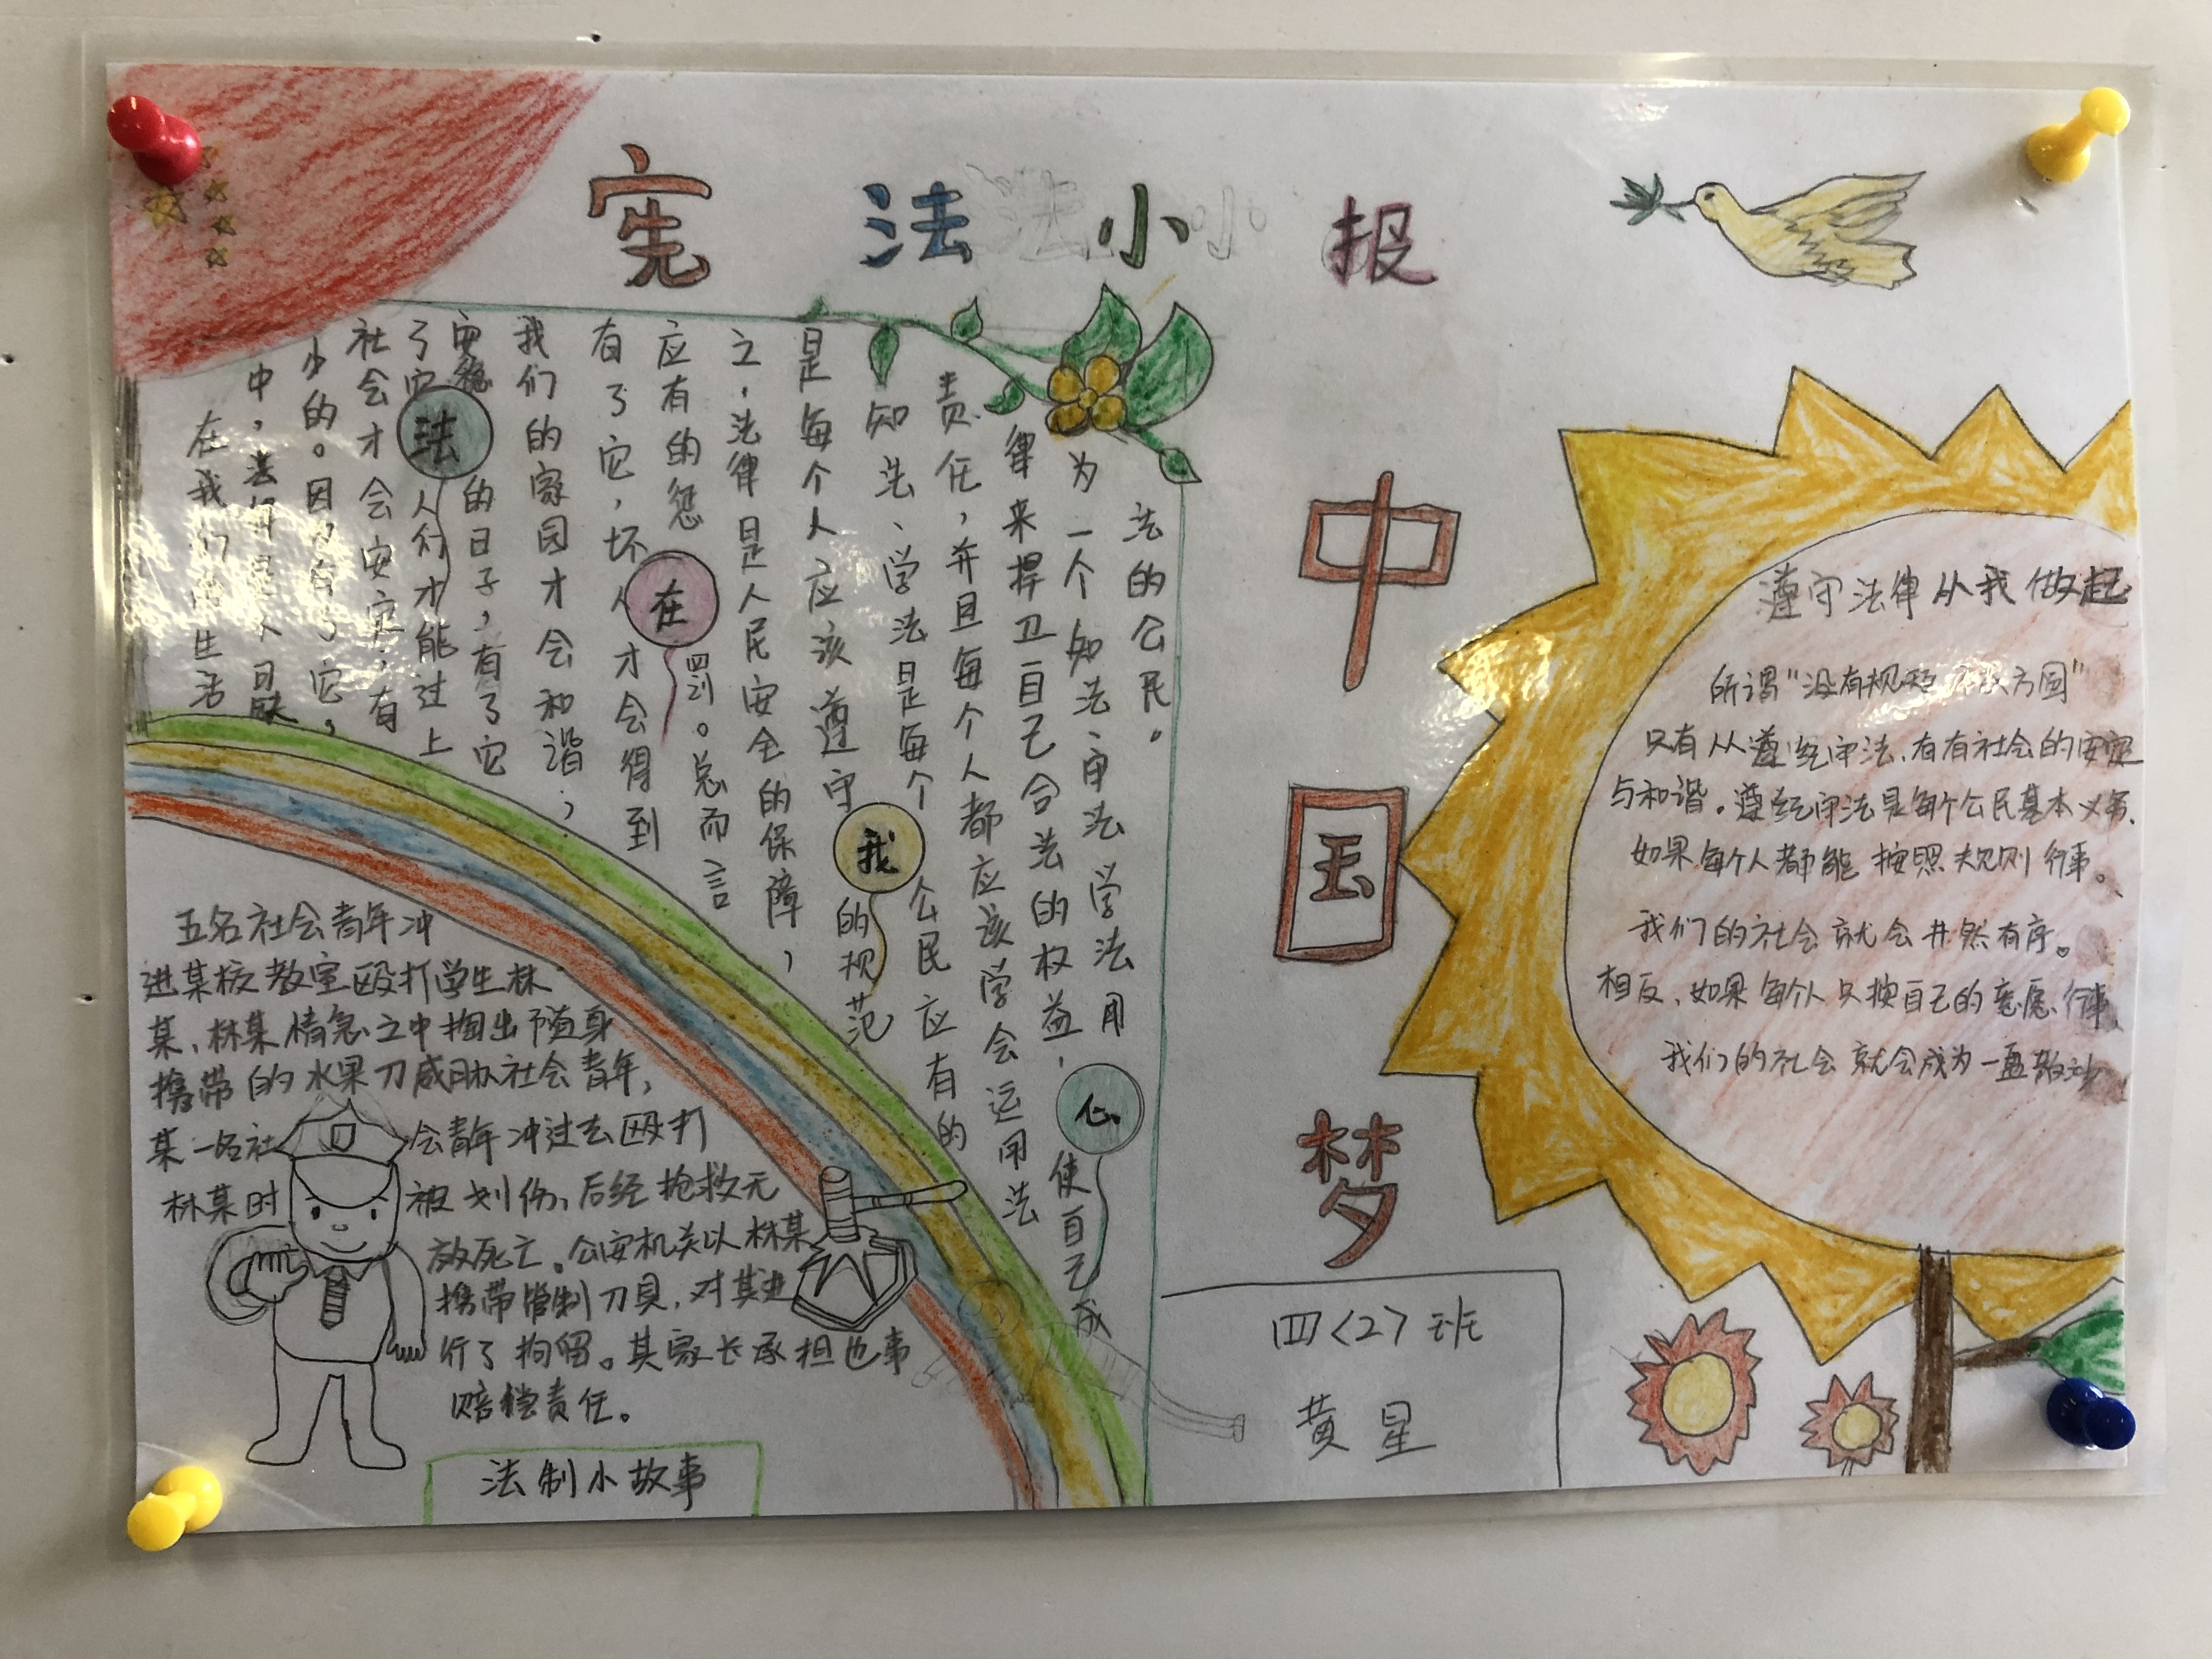 宪法小报
在我们的生活
中，法律是不可缺
少的。因为有了它，
社会才会安定；有
了它，人们才能过上
安稳的日子，有了它
我们的家园才会和谐；
有了它，坏人才会得到
应有的惩罚。总而言
之，法律是人民安全的保障，
是每个人应该遵守的规范
知法、学法是每个公民应有的
责任，并且每个人都应该学会运用法
律来捍卫自己合法的权益，使自己成
为一个知法、守法学法用
法的公民。
法
在
我
心
中
国
梦
遵守法律从我做起
所谓"没有规矩不成方圆"
只有人人遵纪守法、有有社会的安定
与和谐。遵纪守法是每个公民基本义务、
如果每个人都能按照规则行事。
我们的社会就会井然有序。
相反、如果每个人只按自己的意愿、行事
我们的社会就会成为一盘散沙
五名社会青年冲
进某校教室殴打学生林
某、林某情急之中掏出随身
携带的水果刀威胁社会青年，
某一名社会青年冲过去殴打
林某时被划伤、后经抢救无
放死亡。公安机关以林某
携带管制刀具，对其进
行了拘留。其家长承担也事
赔偿责任。
法制小故事
四〈2〉班
黄星